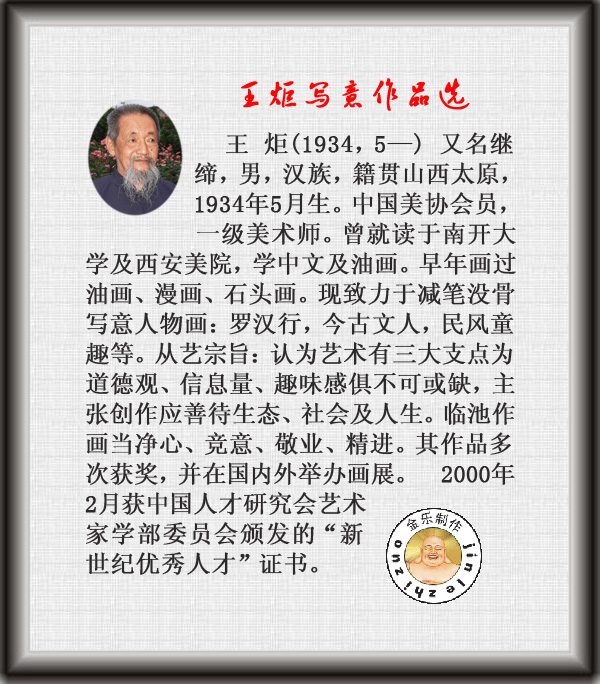 王炬写意作品选
王 炬(1934，5—) 又名继
缔，男，汉族，籍贯山西太原，
1934年5月生。中国美协会员，
一级美术师。曾就读于南开大
学及西安美院，学中文及油画。早年画过
油画、漫画、石头画。现致力于减笔没骨
写意人物画：罗汉行，今古文人，民风童
趣等。从艺宗旨：认为艺术有三大支点为
道德观、信息量、趣味感俱不可或缺，主
张创作应善待生态、社会及人生。临池作
画当净心、竞意、敬业、精进。其作品多
次获奖，并在国内外举办画展。 2000年
2月获中国人才研究会艺术
家学部委员会颁发的“新
世纪优秀人才”证书。
金乐制作
jinlezhizuo